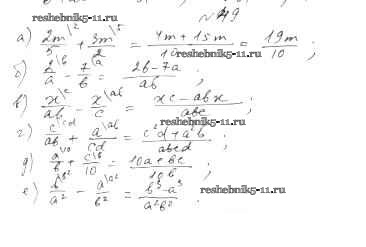 reshebnik5-11.ru
№ 49
а) 2m\²/5 + 3m\⁵/2 = 4m+15m/10 = 19m/10 ;
reshebnik5-11.ru
б) 2\b/a - 7\a/b = 2b-7a/ab ;
в) x\c/ab - x\ab/c = xc-abx/abc ;
reshebnik5-11.ru
г) c\cd/ab + a\ab/cd = c²d+a²b/abcd ;
д) a\10/b + c\b/10 = 10a+bc/10b ;
е) b\b²/a² - a\a²/b² = b³-a³/a²b² .
reshebnik5-11.ru